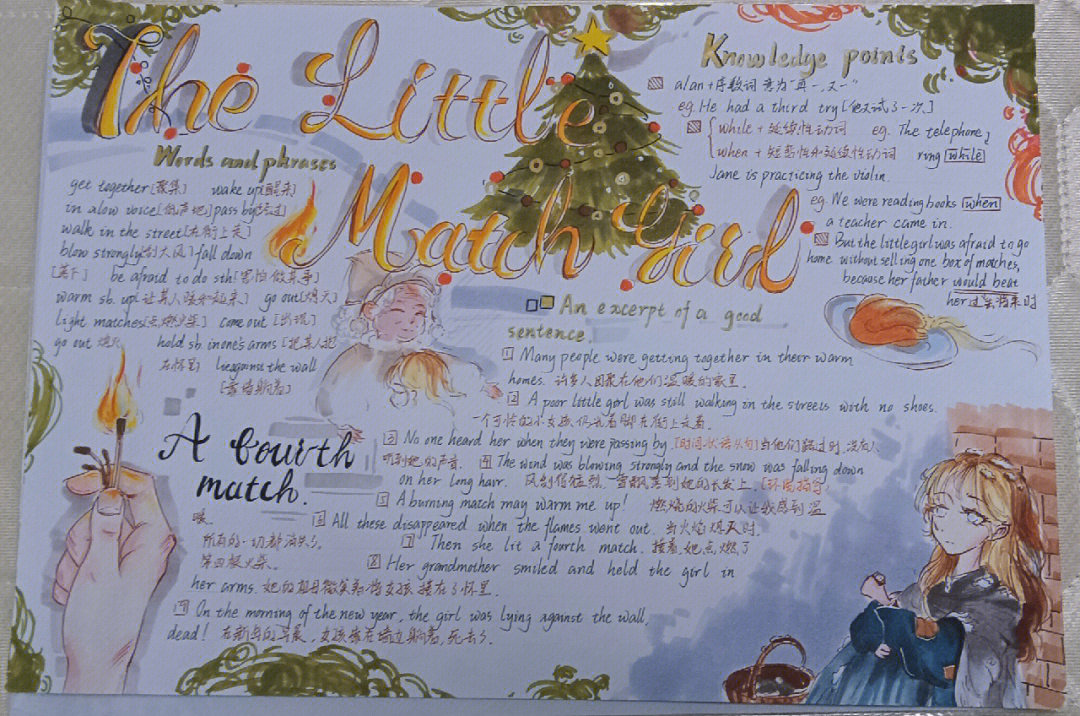 The Little
Match Girl
Words and phrases
get together [聚集] wake up [醒来]
in a low voice [低声地] pass by [经过]
walk in the street [在街上走]
blow strongly [刮大风] fall down
[落下] be afraid to do sth [害怕做某事]
warm sb. up [让某人暖和起来] go out [熄灭]
light matches [点燃火柴] come out [出现]
go out 熄灭 hold sb. in one's arms [把某人抱
在怀里] lie against the wall
[靠墙躺着]
A fourth
match.
Knowledge points
a/an+序数词 意为"再一,又一"
eg. He had a third try [他又试了一次]
while + 延续性动词 eg. The telephone
when + 短暂性和延续性动词 ring while
Jane is practicing the violin.
eg. We were reading books when
a teacher came in.
But the little girl was afraid to go
home without selling one box of matches,
because her father would beat
her 过去将来时
An excerpt of a good
sentence.
1 Many people were getting together in their warm
homes. 许多人团聚在他们温暖的家里.
2 A poor little girl was still walking in the streets with no shoes.
一个可怜的小女孩仍光着脚在街上走着.
3 No one heard her when they were passing by. [时间状语从句] 当他们路过时,没有人
听到她的声音. 4 The wind was blowing strongly and the snow was falling down
on her long hair. 风刮得猛烈,雪飘落到她的长发上. [环境描写]
5 A burning match may warm me up! 燃烧的火柴可以让我感到温
暖. 6 All these disappeared when the flames went out. 当火焰熄灭时,
所有的一切都消失了. 7 Then she lit a fourth match. 接着,她点燃了
第四根火柴. 8 Her grandmother smiled and held the girl in
her arms. 她的祖母微笑着将女孩搂在了怀里.
9 On the morning of the new year, the girl was lying against the wall,
dead! 在新年的早晨,女孩靠在墙边躺着,死去了.